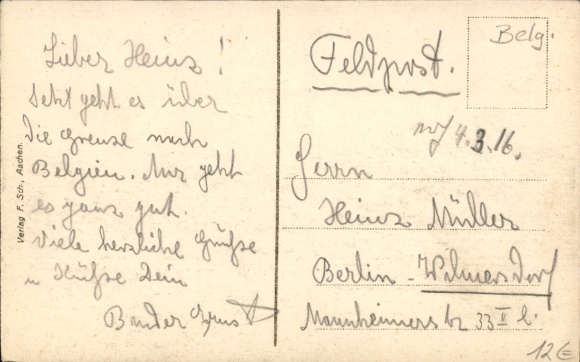 Lieber Heinz!
Jetzt geht es über
die Grenze nach
Belgien. Mir geht
es ganz gut.
Viele herzliche Grüße
u Küße Dein
Bruder Ernst
Verlag F. Sch., Aachen.
Belg.
Feldpost.
4.3.16.
Herrn
Heinz Müller
Berlin-Wilmersdorf
Mannheimerstr 33 II l.
12€